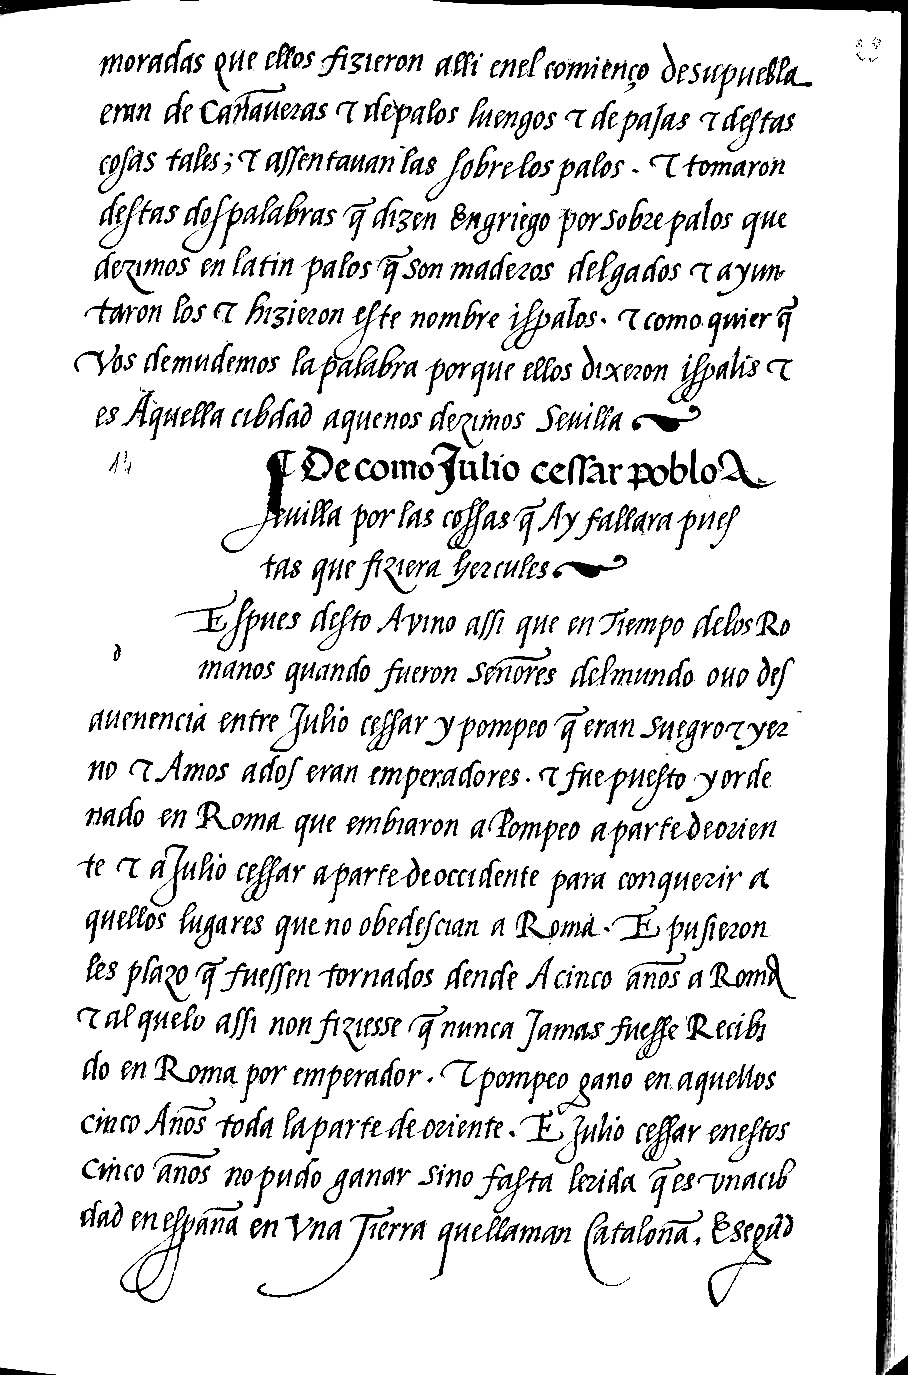 moradas que ellos fizieron alli enel comienço desupuebla
eran de Cañaueras τ de palos luengos τ de pajas τ destas
cosas tales; τ assentauan las sobre los palos. τ tomaron
destas dos palabras q̃ dizen Engriego por sobre palos que
dezimos en latin palos q̃ son maderos delgados τ ayun
taron los τ hizieron este nombre ispalos. τ como quier q̃
Vos demudemos la palabra porque ellos dixeron ispalis τ
es Aquella cibdad aquenos dezimos Sevilla
14
¶ De como Julio cessar poblo A
seuilla por las cossas q̃ Ay fallara pues
tas que fiziera hercules
Espues desto Avino assi que en Tiempo delos Ro
d
manos quando fueron señores del mundo ouo des
auenencia entre Julio cessar y pompeo q̃ eran suegro τ yer
no τ Amos ados eran emperadores. τ fue puesto y orde
nado en Roma que embiaron a Pompeo a parte de orien
te τ a Julio cessar a parte de occidente para conquerir a
quellos lugares que no obedescian a Roma. E pusieron
les plazo q̃ fuessen tornados dende A cinco años a Roma
τ al quelo assi non fiziesse q̃ nunca Jamas fuesse Recibi
do en Roma por emperador. τ pompeo gano en aquellos
cinco Años toda la parte de oriente. E Julio cessar enestos
cinco años no pudo ganar sino fasta lerida q̃ es vna cib
dad en españa en Vna Tierra que llaman Cataloña. E segũd